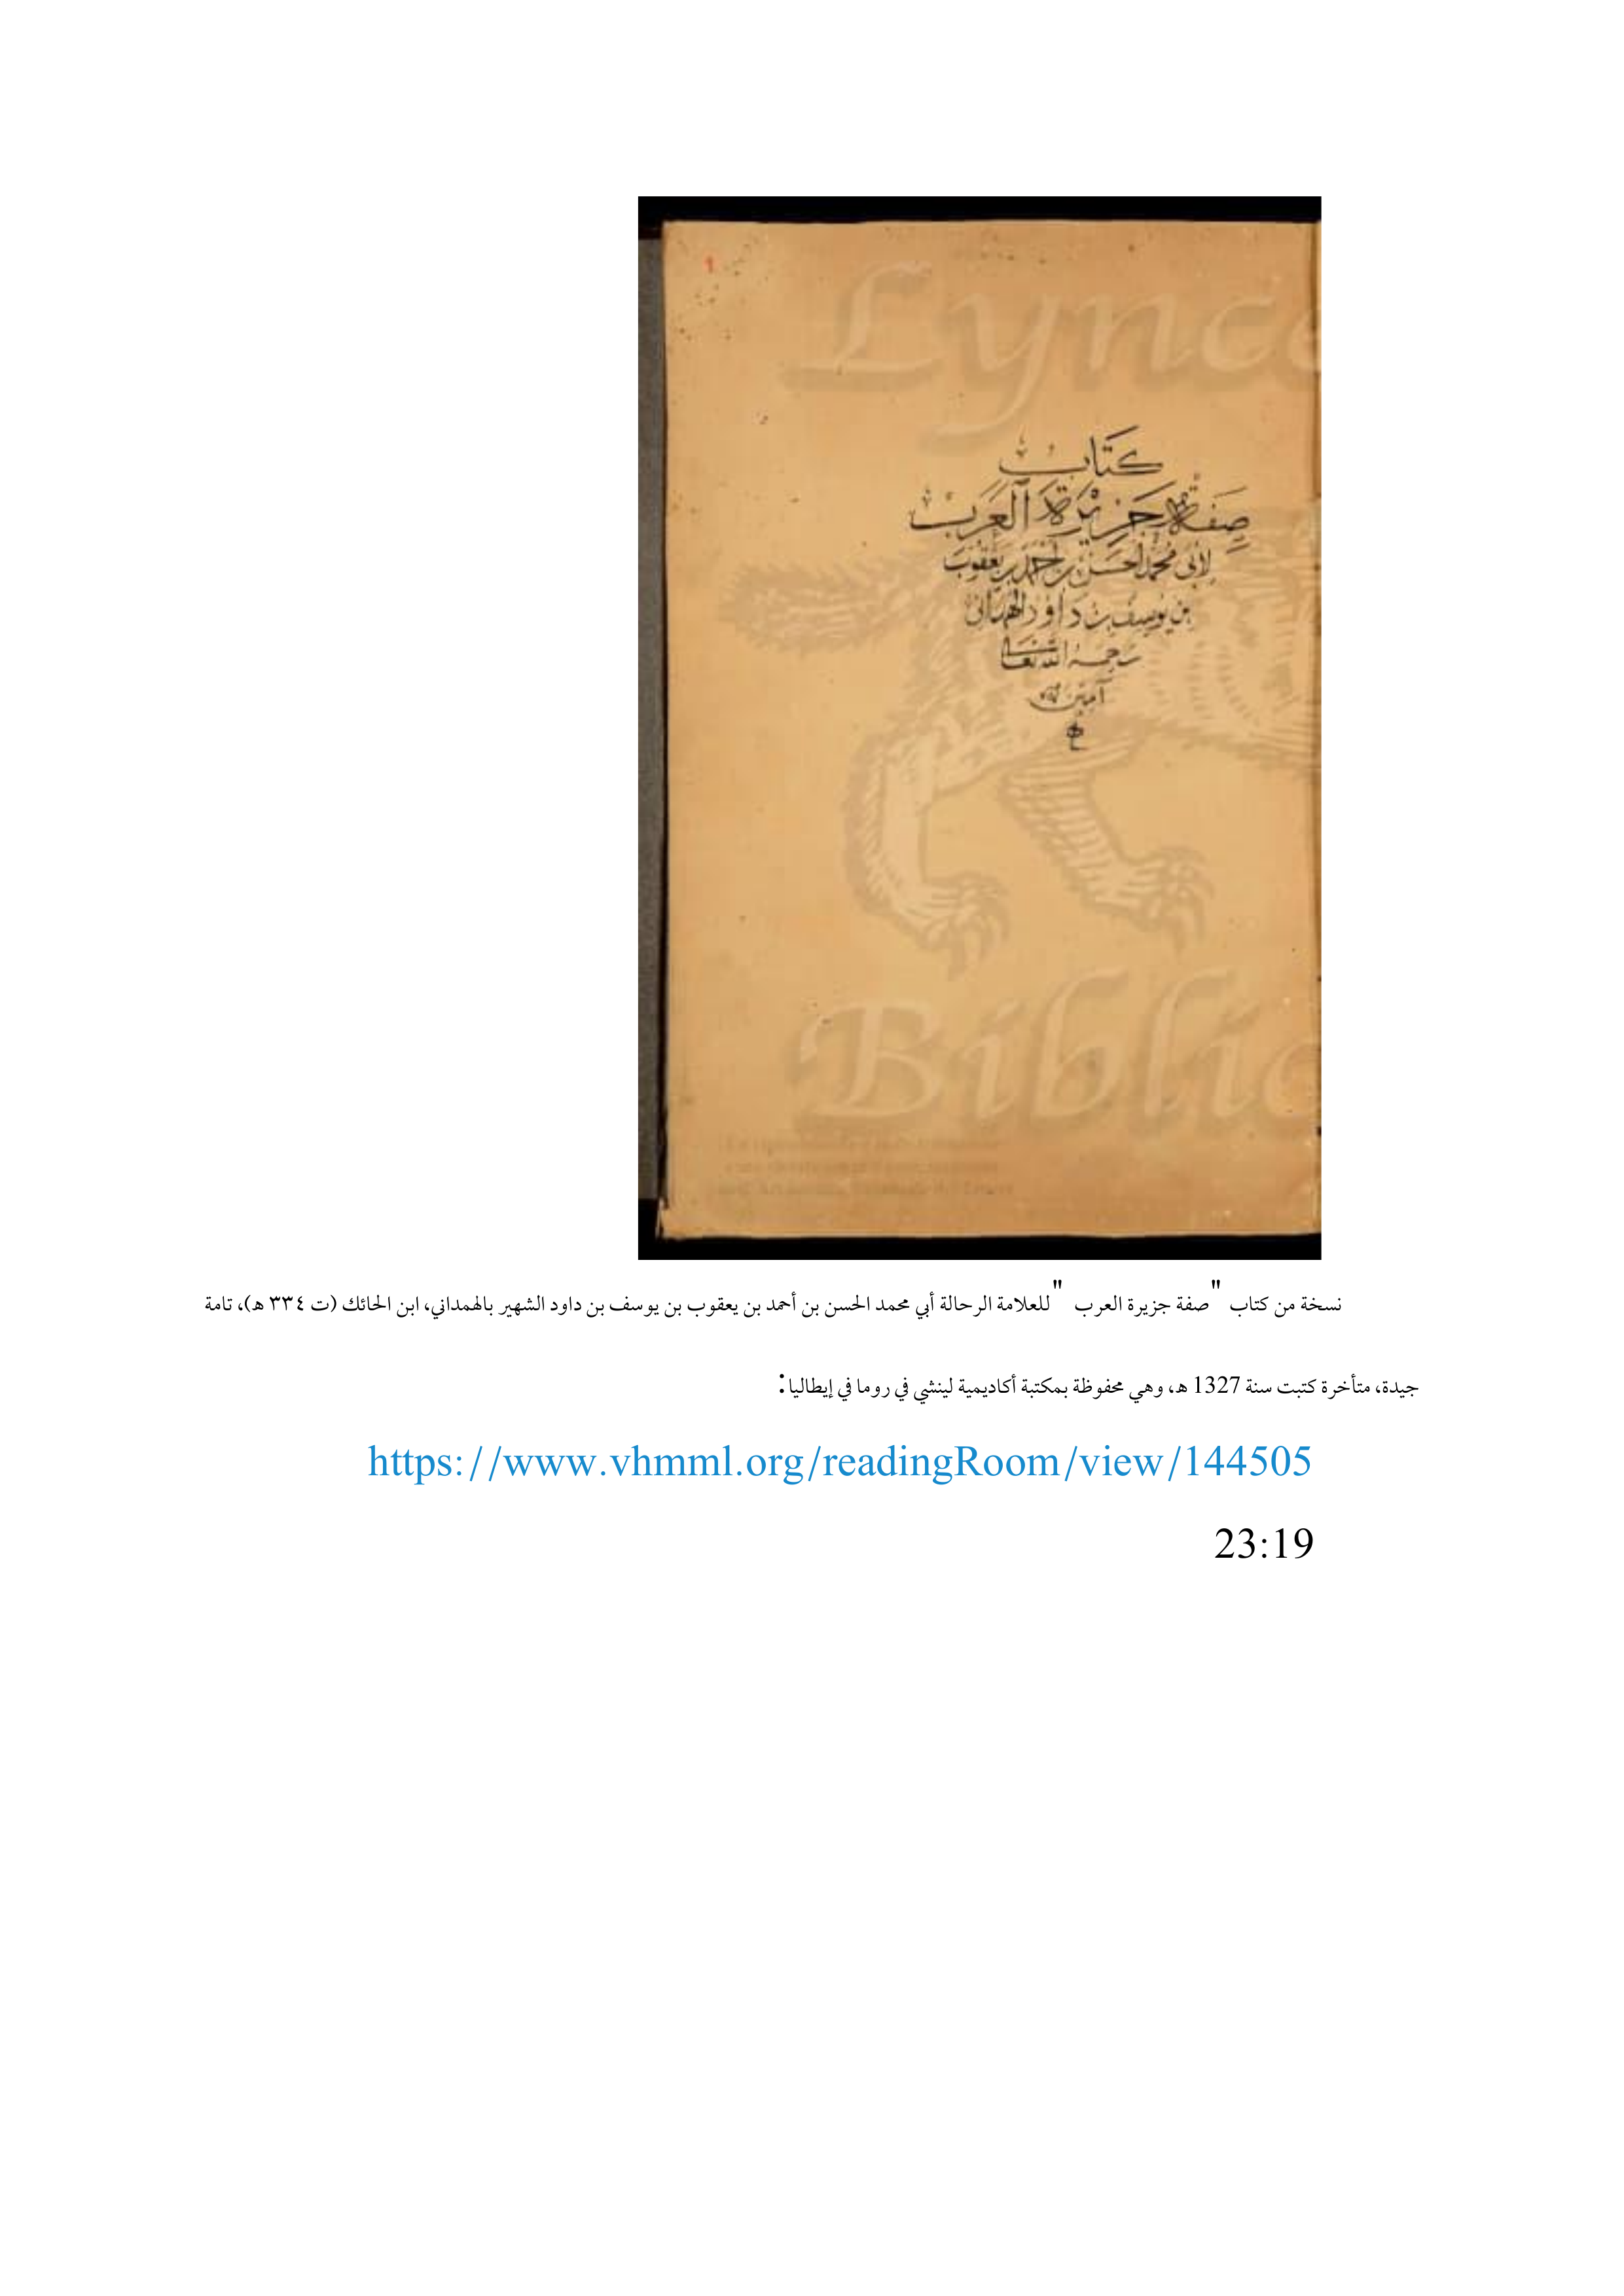 1
Lynce
كتاب
صفة جزيرة العرب
لابي محمد الحسن بن احمد بن يعقوب
بن يوسف بن داود الهمداني
رحمه الله تعالى
آمين
Biblio
نسخة من كتاب "صفة جزيرة العرب" للعلامة الرحالة أبي محمد الحسن بن أحمد بن يعقوب بن يوسف بن داود الشهير بالهمداني، ابن الحائك (ت ٣٣٤ هـ)، تامة
جيدة، متأخرة كتبت سنة 1327 هـ، وهي محفوظة بمكتبة أكاديمية لينشي في روما في إيطاليا:
https://www.vhmml.org/readingRoom/view/144505
23:19